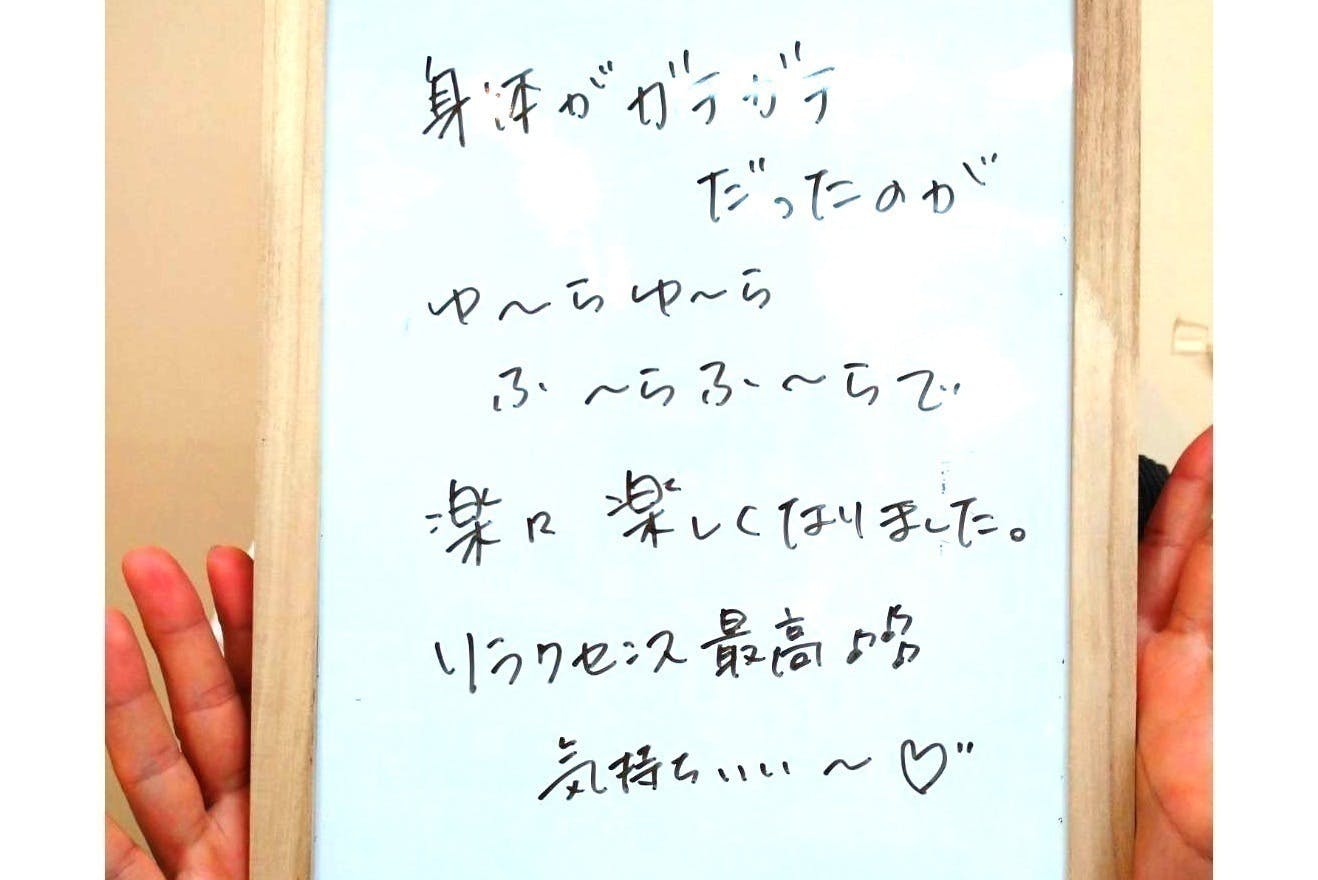 身体がガラガラ
だったのが
ゆ〜らゆ〜ら
ふ〜らふ〜らで
楽に 楽しくなりました。
リラクセンス最高♪♫♪
気持ちいい〜♡"